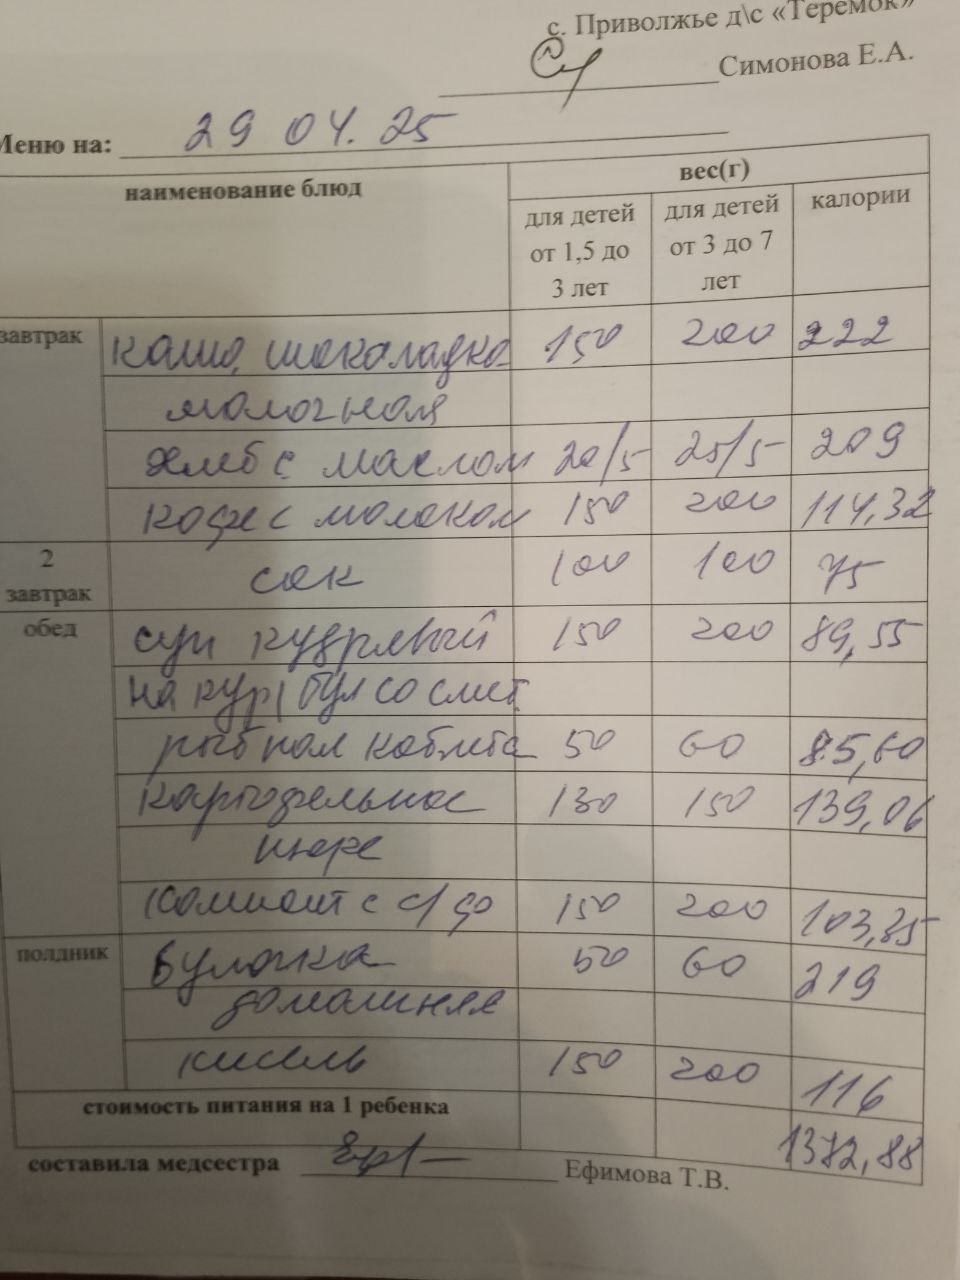 с. Приволжье д\с «Теремок»
Симонова Е.А.
Меню на: 29 04. 25
наименование блюд
вес(г)
для детей от 1,5 до 3 лет
для детей от 3 до 7 лет
калории
завтрак
каша, шоколадно 150 200 222
молочная
хлеб с маслом 20/5 25/5 209
кофе с молоком 150 200 114,32
2 завтрак
сок 100 100 75
обед
суп кудрявый 150 200 89,55
на кур бул со смет
рыбная котлета 50 60 85,60
картофельное 130 150 139,06
пюре
компот с с/ 150 200 103,35
полдник
булочка 50 60 219
домашняя
кисель 150 200 116
стоимость питания на 1 ребенка
1372,88
составила медсестра Ефимова Т.В.